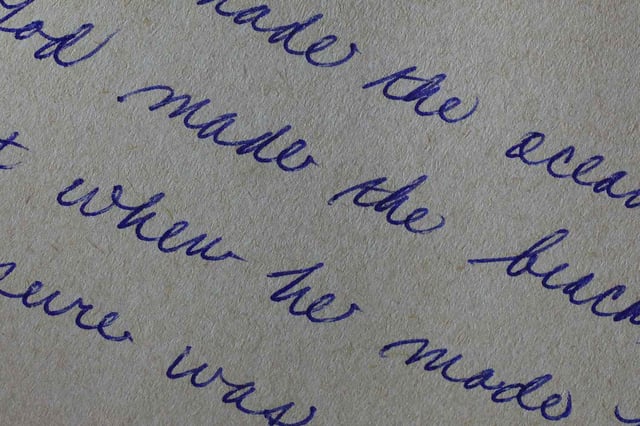 made the ocean
God made the beach
t when he made
sure was